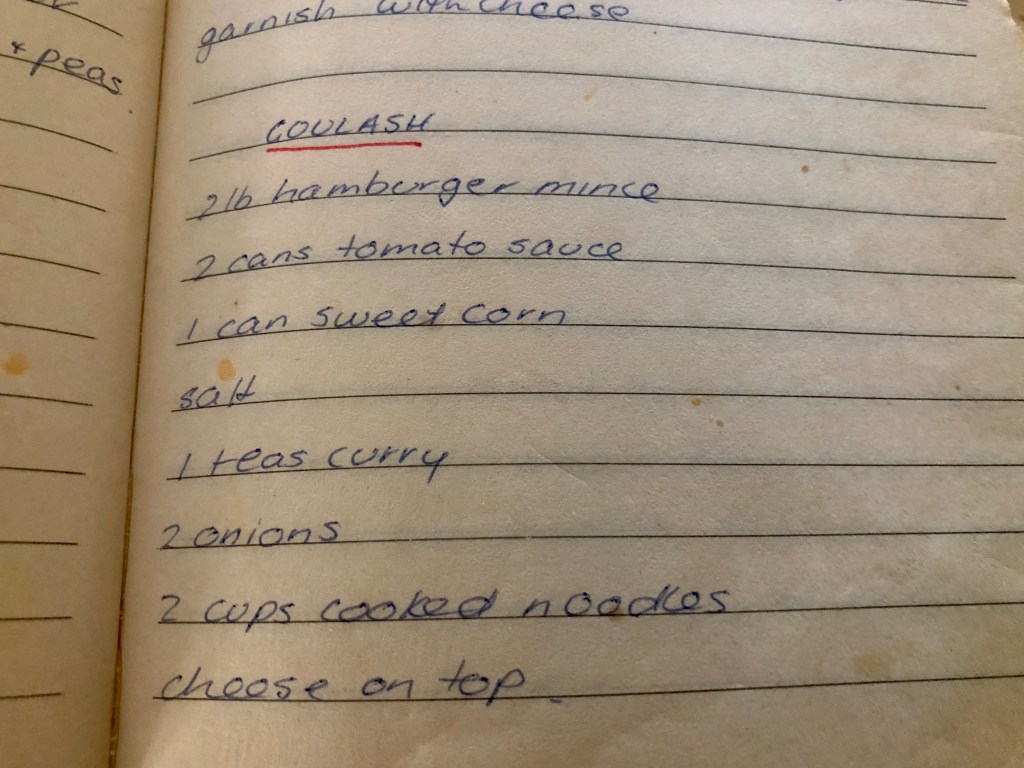 + peas
garnish with cheese
GOULASH
2 lb hamburger mince
2 cans tomato sauce
1 can sweet corn
salt
1 teas curry
2 onions
2 cups cooked noodles
cheese on top